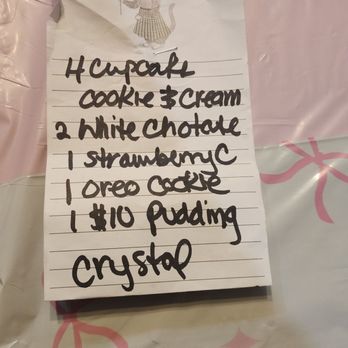 4 Cupcake
cookie $ Cream
2 White Chotate
1 strawberry C
1 oreo cookie
1 $10 pudding
Crystal